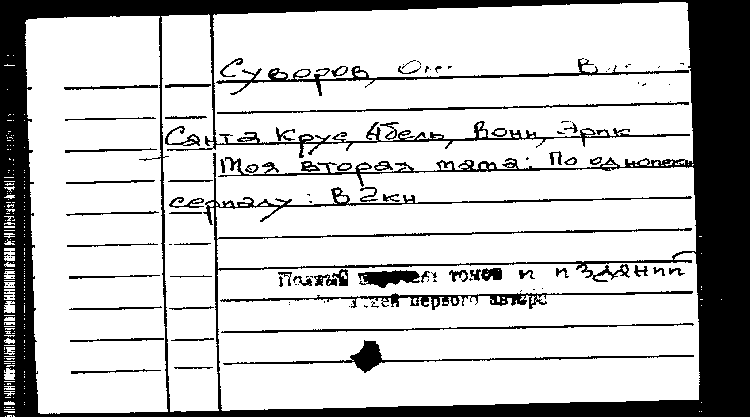 Суворов,
Санта Крус, Абель, Вонн, Эрик
Моя вторая мама: По
сериалу: В 2кн
Полный томов и изданий
первого автора